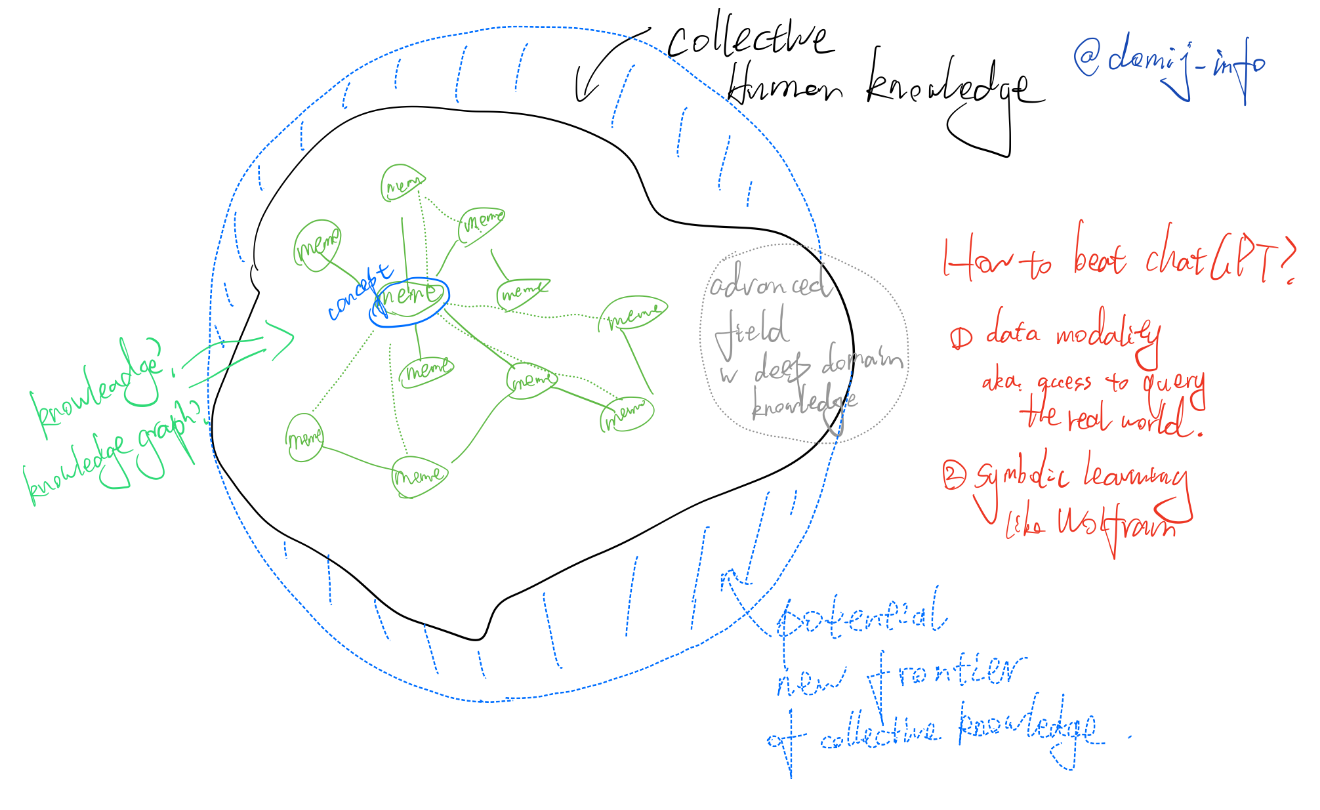 collective
Human knowledge
@damij-info
meme
meme
meme
concept
meme
meme
meme
meme
meme
meme
meme
meme
advanced
field
w deep domain
knowledge
knowleadge?
knowledge graph?
How to beat chatGPT?
① data modality
aka. access to query
the real world.
② symbolic learning
like Wolfram
potential
new frontier
of collective knowledge.